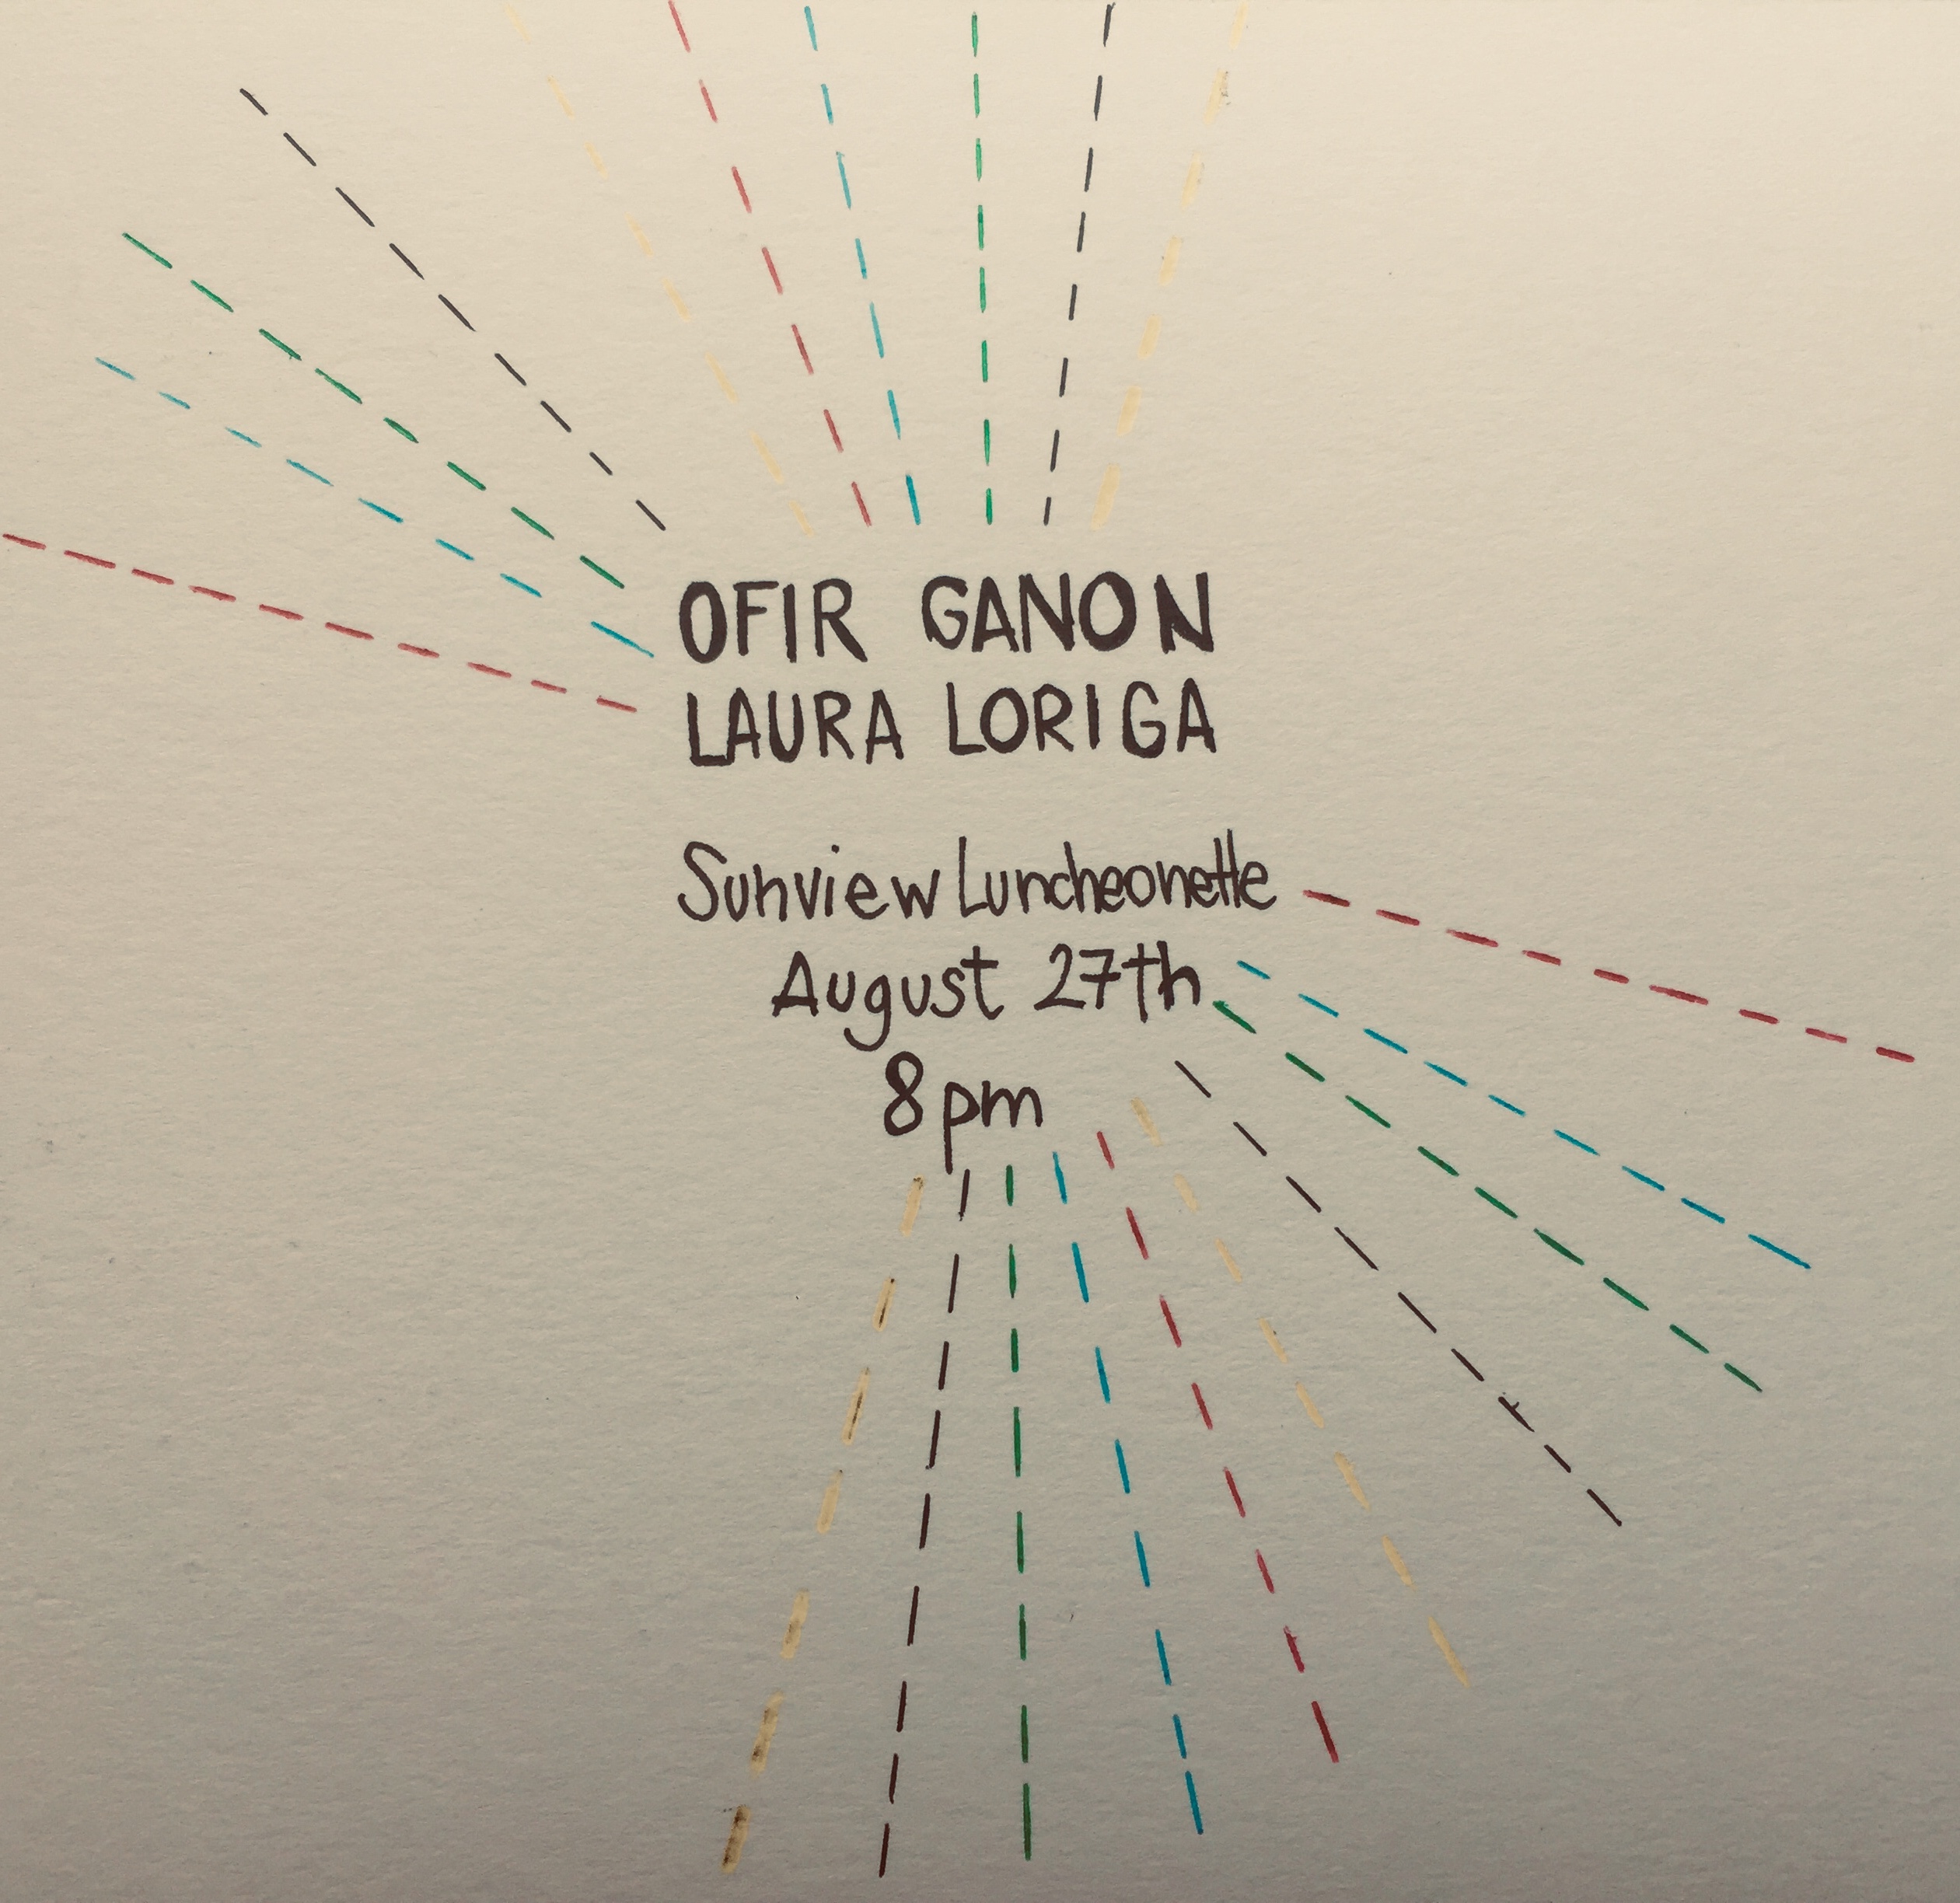 OFIR GANON
LAURA LORIGA
Sunview Luncheonette
August 27th
8pm